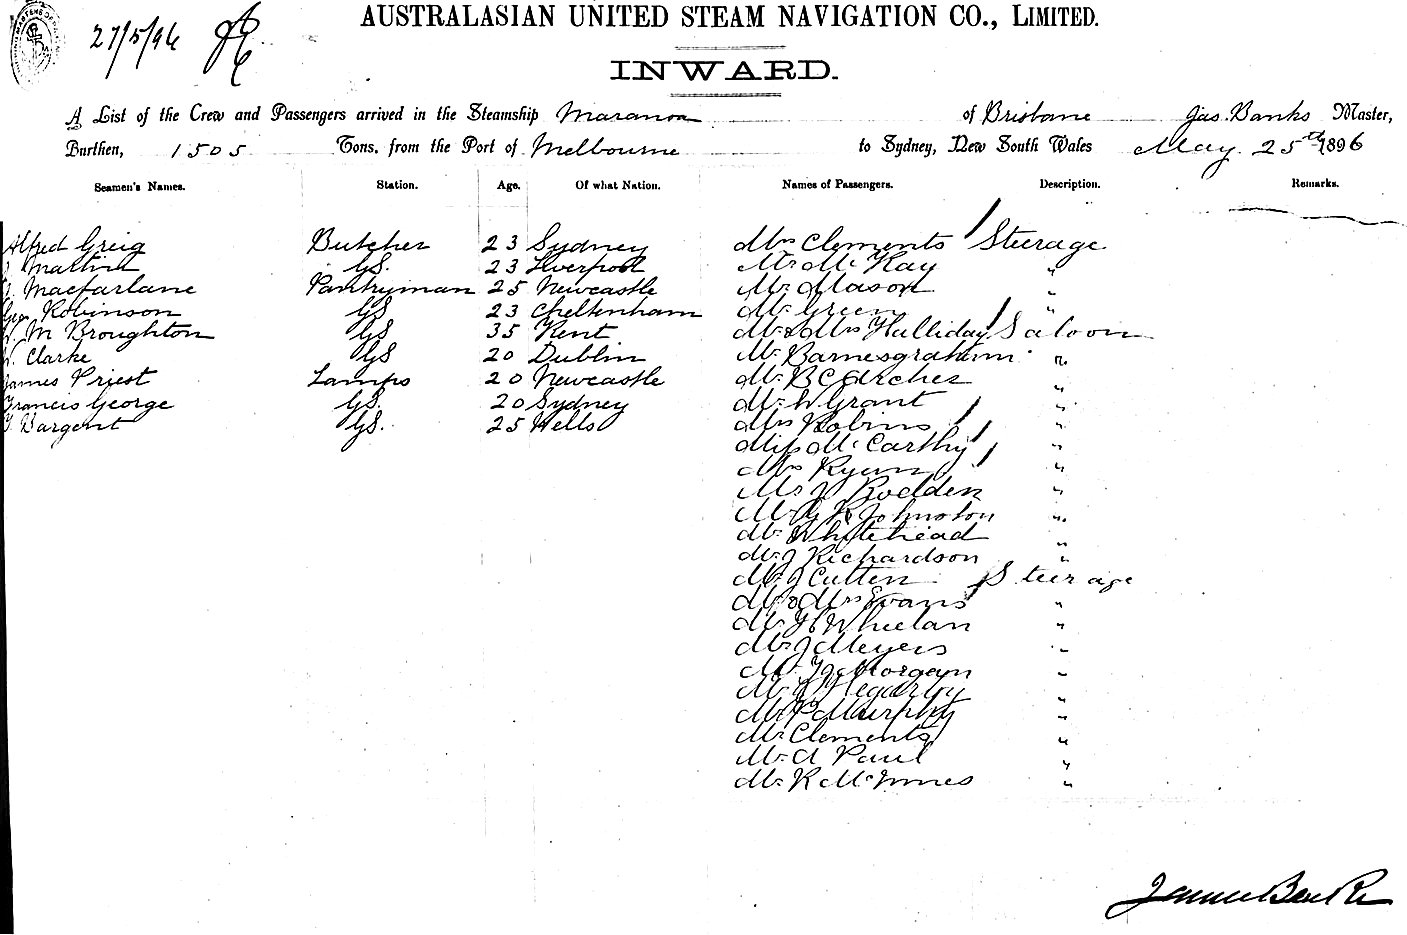 27/5/96
AUSTRALASIAN UNITED STEAM NAVIGATION CO., LIMITED.
INWARD.
A List of the Crew and Passengers arrived in the Steamship Maranoa of Brisbane Jas. Banks Master,
Burthen, 1505 Tons, from the Port of Melbourne to Sydney, New South Wales May 25th 1896
Seamen's Names. Station. Age. Of what Nation. Names of Passengers. Description. Remarks.
Alfred Greig Butcher 23 Sydney Mrs Clements 1 Steerage
Martin GS. 23 Liverpool Mr. McKay "
Macfarlane Pantryman 25 Newcastle Mr Mason "
Geo Robinson GS 23 Cheltenham Mr Green "
W. M Broughton GS 35 Kent Mr & Mrs Halliday 1 Saloon
W. Clarke GS 20 Dublin Mr. Barnesgraham "
James Priest Lamps 20 Newcastle Mr. B C Archer "
Francis George GS. 20 Sydney Mr. W Grant "
Sargent GS. 25 Wells Mrs Robins 1 "
Miss McCarthy 1 "
Mrs Ryan 1 "
Mr J Rodden "
Mr G R Johnston "
Mr Whitehead "
Mr J Richardson "
Mr J Cutten Steerage
Mr & Mrs Evans "
Mr Whelan "
Mr J Meyers "
Mr Morgan "
Mr Hegarty "
Mr P Murphy "
Mr Clements "
Mr. A Paul "
Mr. R McInnes "
James Banks